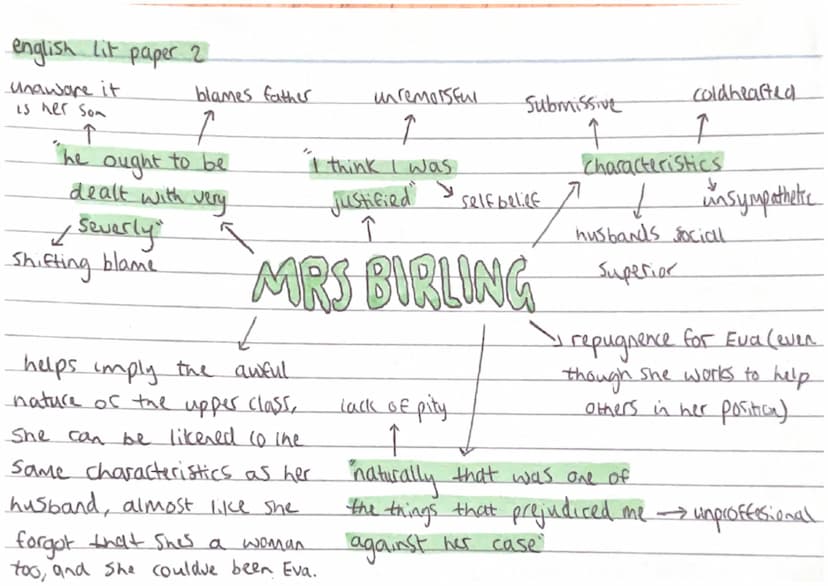 english lit paper 2
unaware it
is her son
blames father
unremorsful
submissive
coldhearted
"he ought to be
dealt with very
severly"
shifting blame
"I think I was
justified"
self belief
characteristics
unsympathetic
husbands social
superior
MRS BIRLING
repugnence for Eva (even
though she works to help
others in her position)
helps imply the awful
nature of the upper class,
she can be likened to the
same characteristics as her
husband, almost like she
forgot that she's a woman
too, and she couldve been Eva.
lack of pity
"naturally that was one of
the things that prejudiced me
against her case"
unproffesional